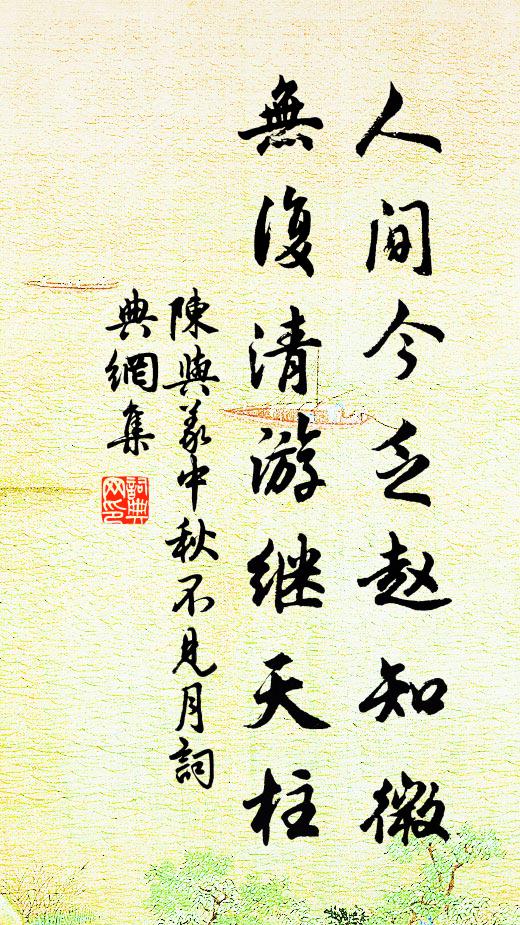 人间今乏赵知微
無復清游继天柱
陳與義中秋不见月詞
典網集
詞典网印